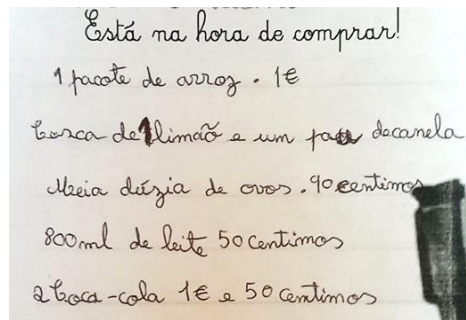 Está na hora de comprar!
1 pacote de arroz . 1€
Casca de 1 limão e um pau decanela
Meia dúzia de ovos . 90 centimos
800ml de leite 50 centimos
2 Coca-cola 1€ e 50 centimos